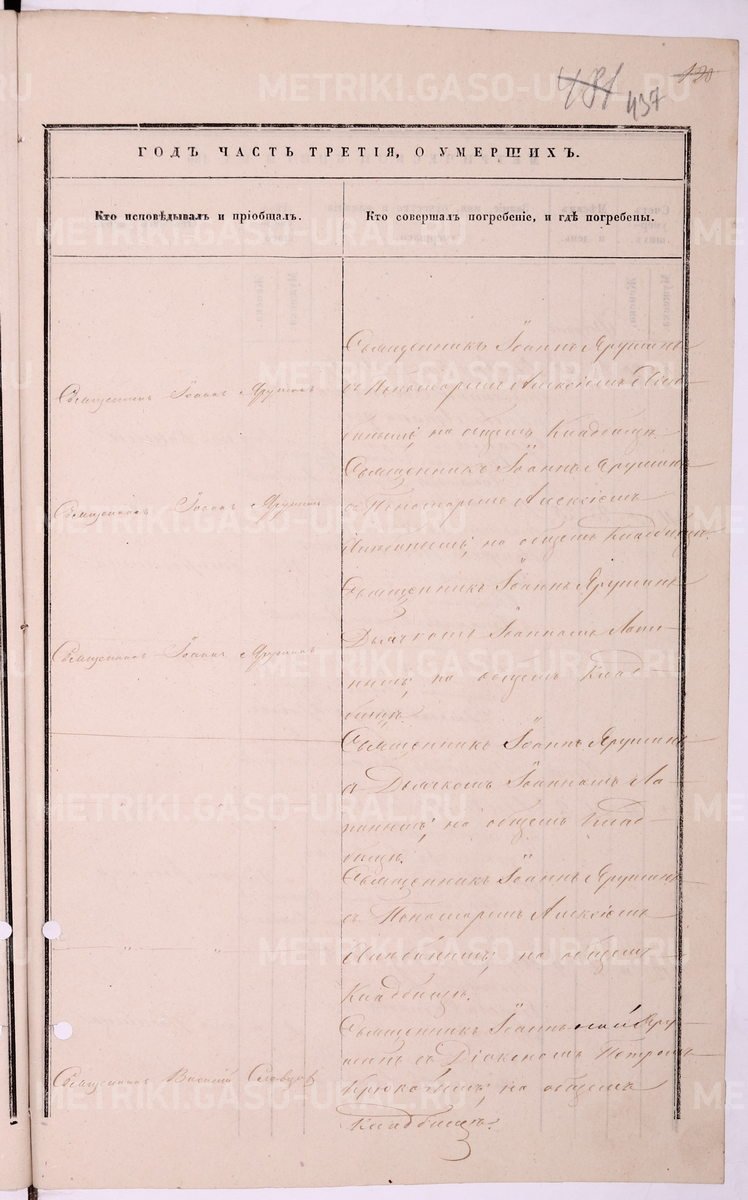 481 437
130
ГОДЪ ЧАСТЬ ТРЕТІЯ, О УМЕРШИХЪ.
Кто исповѣдывалъ и пріобщалъ.
Кто совершалъ погребеніе, и гдѣ погребены.
Священникъ Іоаннъ Ярушинъ
Священникъ Іоаннъ Ярушинъ
съ Пономаремъ Алексіемъ
на общемъ Кладбищѣ.
Священникъ Іоаннъ Ярушинъ
Священникъ Іоаннъ Ярушинъ
съ Пономаремъ Алексіемъ
на общемъ Кладбищѣ.
Священникъ Іоаннъ Ярушинъ
Священникъ Іоаннъ Ярушинъ
Дьячкомъ Іоанномъ Лапи-
нымъ, на общемъ Клад-
бищѣ.
Священникъ Іоаннъ Ярушинъ
съ Дьячкомъ Іоанномъ Ла-
пинымъ, на общемъ Клад-
бищѣ.
" "
Священникъ Іоаннъ Ярушинъ
съ Пономаремъ Алексіемъ
на общемъ
Кладбищѣ.
Священникъ Василій Словцовъ
Священникъ Іоаннъ Яру-
шинъ съ Діакономъ Петромъ
Крюковымъ, на общемъ
Кладбищѣ.
METRIKI.GASO-URAL.RU